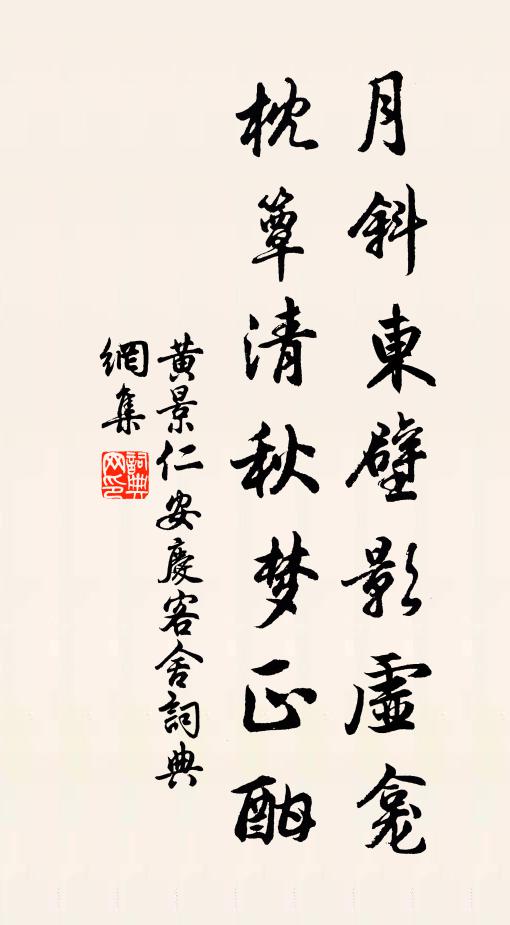 月斜東壁影虛龕
枕簟清秋梦正酣
黃景仁安慶客舍詞典
網集
詞典網印